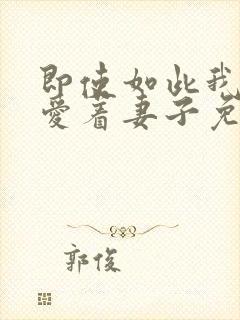 即使如此我
爱着妻子免
郭俊